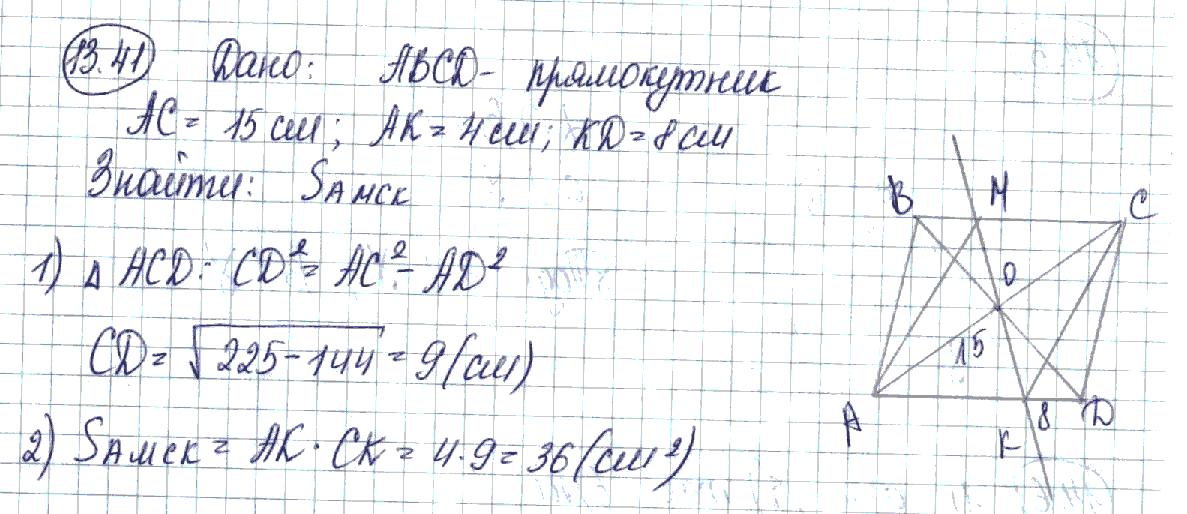 13.41 Дано: ABCD - прямокутник
AC = 15 см; AK = 4 см; KD = 8 см
Знайти: SАМСК
1) Δ ACD: CD² = AC² - AD²
CD = √225-144 = 9 (см)
2) SАМСК = AK · CK = 4·9 = 36 (см²)
B M C
O
15
A 8 D
K